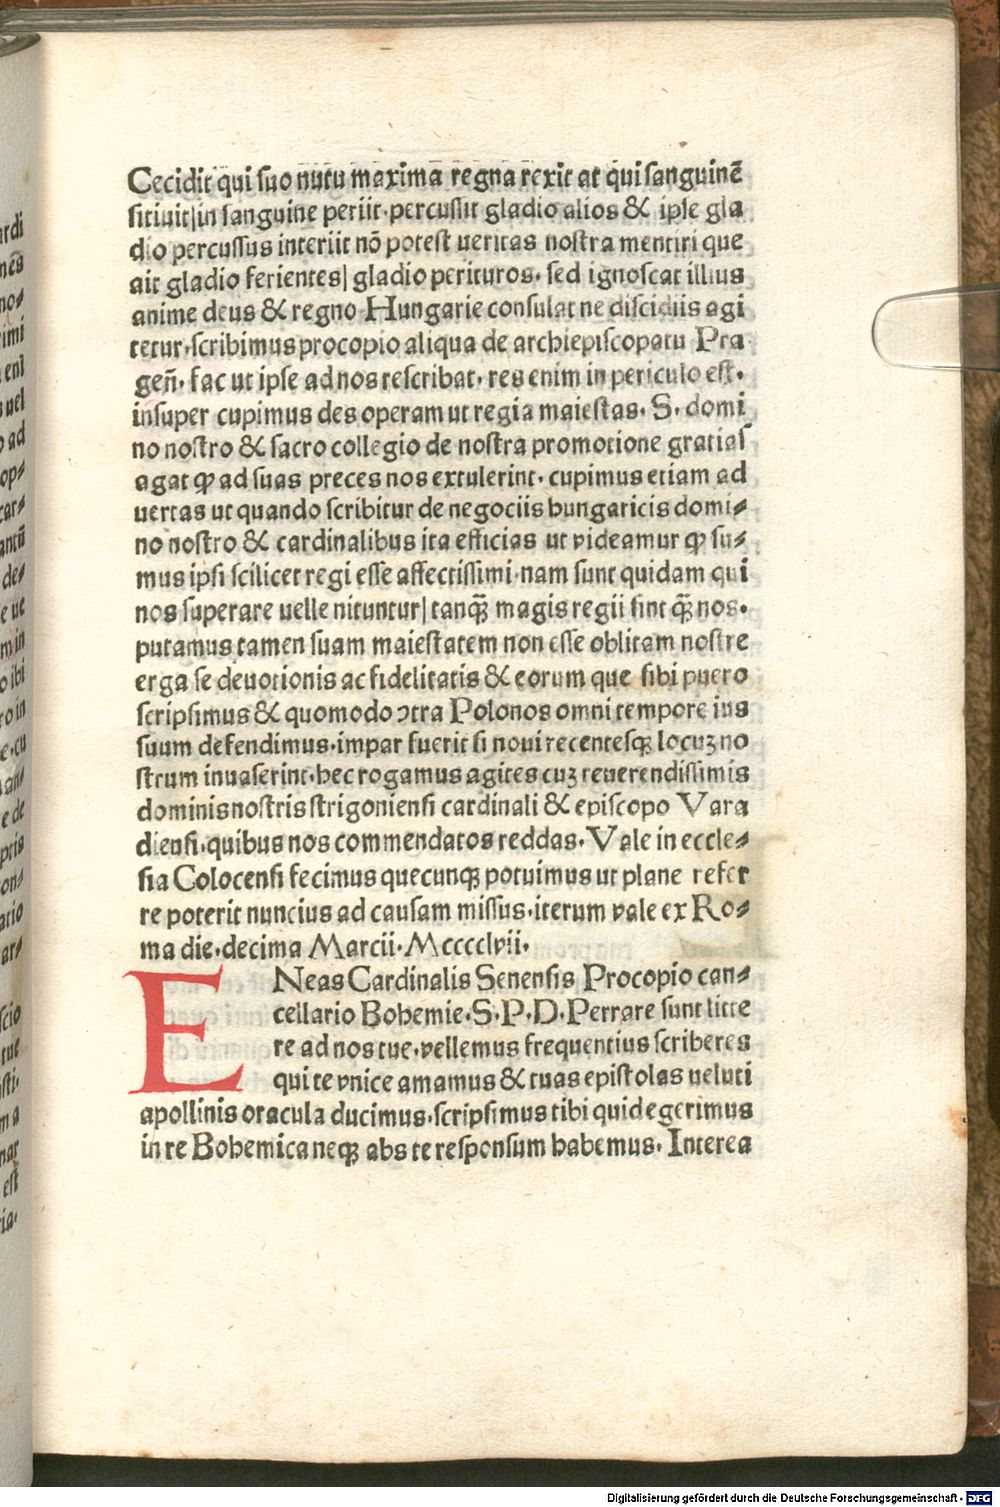 Cecidit qui suo nutu maxima regna rexit at qui sanguinē
sitiuit|in sanguine periit·percussit gladio alios & ipse gla
dio percussus interiit nō potest ueritas nostra mentiri que
ait gladio ferientes| gladio perituros· sed ignoscat illius
anime deus & regno Hungarie consulat ne discidiis agi
tetur·scribimus procopio aliqua de archiepiscopatu Pra
geñ· fac ut ipse ad nos rescribat· res enim in periculo est·
insuper cupimus des operam ut regia maiestas· S· domi
no nostro & sacro collegio de nostra promotione gratias
agat ꝙ ad suas preces nos extulerint· cupimus etiam ad
uertas ut quando scribitur de negociis hungaricis domi⸗
no nostro & cardinalibus ita efficias ut videamur ꝙ su⸗
mus ipsi scilicet regi esse affectissimi·nam sunt quidam qui
nos superare uelle nituntur| tanq̄ magis regii sint q̄ nos·
putamus tamen suam maiestatem non esse oblitam nostre
erga se deuotionis ac fidelitatis & eorum que sibi puero
scripsimus & quomodo ɔtra Polonos omni tempore ius
suum defendimus·impar fuerit si noui recentesqꝫ locuꝫ no
strum inuaserint·hec rogamus agites cuꝫ reuerendissimis
dominis nostris strigoniensi cardinali & episcopo Vara
diensi·quibus nos commendatos reddas· Vale in eccle⸗
sia Colocensi fecimus quecunqꝫ potuimus ut plane refer
re poterit nuncius ad causam missus·iterum vale ex Ro⸗
ma die·decima Marcii·Mcccclvii·
ENeas Cardinalis Senensis Procopio can⸗
cellario Bohemie·S·P·D·Perrare sunt litte
re ad nos tue·vellemus frequentius scriberes
qui te vnice amamus & tuas epistolas ueluti
apollinis oracula ducimus·scripsimus tibi quid egerimus
in re Bohemica neqꝫ abs te responsum habemus· Interea
Digitalisierung gefördert durch die Deutsche Forschungsgemeinschaft - DFG